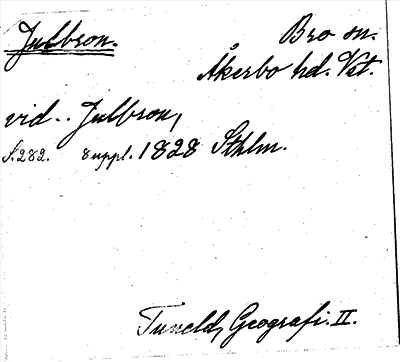 Julbron.
Bro sn.
Åkerbo hd. Vst.
vid.. Julbron,
S. 282. 8 uppl. 1828 Sthlm.
Tuneld, Geografi. II.